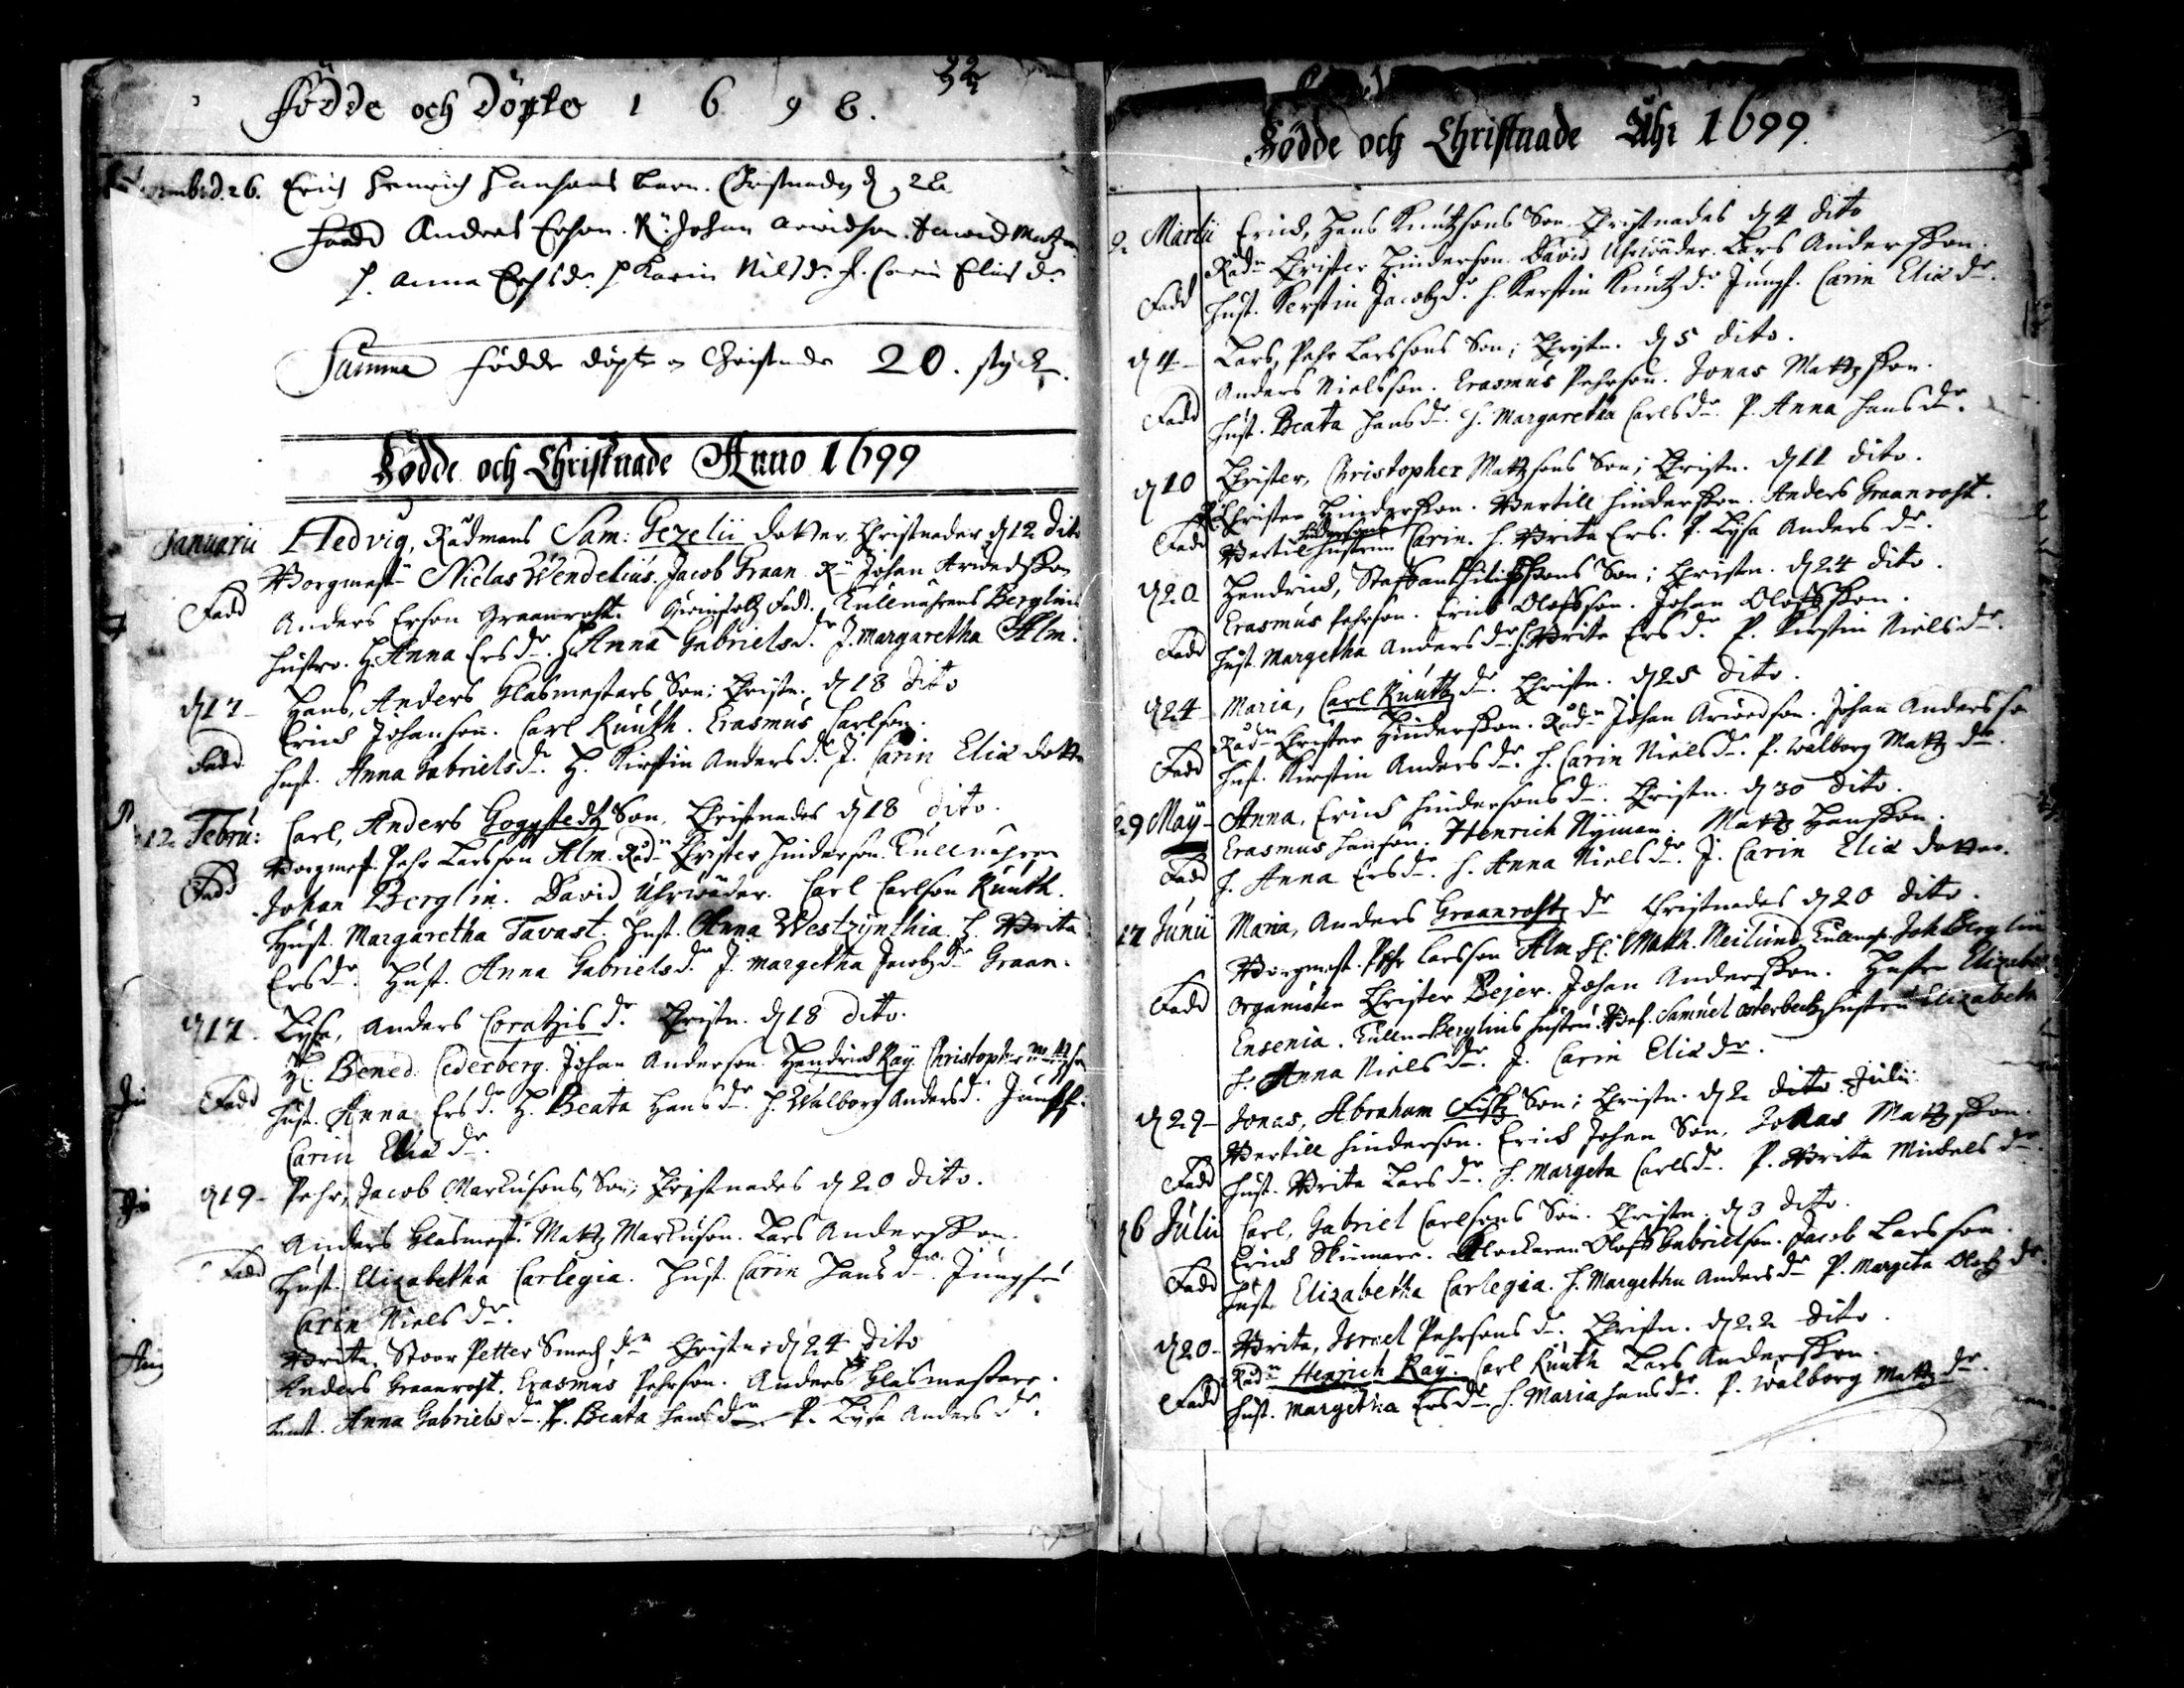 32
födde och döpte 1 6 9 8.
d. 26. Erich Henrich Hansons barn. Christnades d 28
fadd Anders Erson. R: Johan Arvidson. Matzon
h. Anna Ersd. h Karin Nilsdr J. Carin Elias dr
Summa födde döpte och Christnade 20. stycke.
Födde och Christnade Anno 1699
Januarii Hedvig, Rådmans Sam: Gezelii dotter, Christnades d 12 dito
Borgmest. Niclas Wendelius. Jacob Graan. R. Johan Arvedsson
Fadd Anders Erson Graanroht. Fadd. Tullnährens Berglins
hustro. H. Anna Ersdr. H. Anna Gabrielsd. J. Margaretha Alm.
d 17 Hans, Anders Glasmestars Son; Christn. d 18 dito
Erick Johanson. Carl Knuth. Erasmus Carlson.
Fadd Hust. Anna Gabrielsdr. H. Kirstin Andersd. J. Carin Eliæ dotte
12. Febru: Carl, Anders Goggstedtz Son, Christnades d 18 dito.
Borgmest. Pehr Larsson Alm. Råd. Christer Hinderson. Tullnähren
Fadd Johan Berglin. David Uhrwäder. Carl Carlson Knuth.
Hust. Margaretha Tavast. Hust. Anna Westzynthia. H. Brita
Ersdr. Hust. Anna Gabrielsd. J. Margetha Jacobzdr Graan.
d 17. Lysa, Anders Coratzis dr. Christn. d 18 dito.
H. Bened. Cederberg. Johan Anderson. Hendrick Raÿ. Christopher Mattzson
Fadd Hust. Anna Ersd. H. Beata Hansdr. H. Walborg Andersd. Jungf.
Carin Eliæ dr.
d 19 Pehr, Jacob Markusons Son, Christnades d 20 dito.
Anders Glasmest. Mattz Markuson. Lars Andersson.
Fadd Hust. Elizabetha Carlegia. Hust. Carin Hansdr. Jungfru
Carin Nielsdr.
Brita, Stoor Petter Smeds dr Christn: d 24 dito
Anders Graanroht. Erasmus Pehrson. Anders Glasmestare.
Hust. Anna Gabrielsdr. H. Beata Hansdr. P. Lysa Andersdr.
Födde och Christnade Åhr 1699.
2 Martii Erick, Hans Knutzsons Son Christnades d 4 dito
Rådm Christer Hinderson. David Uhrwäder. Lars Andersson.
Fadd Hust. Kerstin Jacobzd. h. Kerstin Knutzd. Jungf. Carin Eliædr.
d 4 Lars, Pehr Larssons Son; Christn. d 5 dito.
Anders Nielsson. Erasmus Pehrson. Jonas Mattzson.
Fadd Hust. Beata Hansdr. H. Margaretha Carlsdr. P. Anna Hansdr.
d 10 Christer, Christopher Mattzsons Son; Christn. d 11 dito.
R. Christer Hindersson. Bertill Hindersson. Anders Graanroht.
Fadd Bertil Hindersons Hustrun Carin. h. Brita Ers. P. Lysa Andersdr.
d 20 Hendrick, Staffan Son; Christn. d 24 dito.
Erasmus Pehrson. Erick Olofsson. Johan Olofsson.
Fadd Hust. Margetha Andersdr. h. Brita Ersd. P. Kirstin Nielsdr.
d 24 Maria, Carl Knuttz dr. Christn. d 25 dito.
Rådm Christer Hindersson. Rådm Johan Arvedson. Johan Andersso
Fadd Hust. Kirstin Andersdr. h. Carin Nielsdr. P. Walborg Mattzdr.
29 Maÿ Anna, Erick Hindersons dr. Christn. d 30 dito.
Erasmus Hanson. Henrich Nÿman. Mattz Hansson.
Fadd h. Anna Ersdr. h. Anna Nielsdr. J. Carin Eliæ dotter.
17 Junii Maria, Anders Graanrohtz dr Christnades d 20 dito.
Borgmest. Pehr Larsson Alm. H. Math. Tulln. Joh Berglin
Fadd Organisten Christer Bejer. Johan Andersson. Hustru Elizabe
Ensenia. Tulln Berglins hustru. Samuel Osterbeckz hustru Elizabeth
h. Anna Nielsdr. J. Carin Eliædr.
d 29 Jonas, Abraham Fiskz Son; Christn. d 2 dito Julii.
Bertill Hinderson. Erick Johan Son. Jonas Mattzson.
Fadd Hust. Brita Larsdr. h. Margeta Carlsdr. P. Brita Mickelsdr.
6 Julii Carl, Gabriel Carlsons Son. Christn. d 3 dito.
Erick Skinnare. Klockaren Oloff Gabrielson. Jacob Larsson.
Fadd Hust. Elizabetha Carlegia. h. Margetha Andersdr P. Margeta Olofzdr.
d 20 Brita, Israel Pehrsons dr. Christn. d 22 dito.
Rådm Henrich Raÿ. Carl Knuth Lars Andersson.
Fadd Hust. Margetha Ersdr. h. Maria Hansdr. P. Walborg Mattzdr.